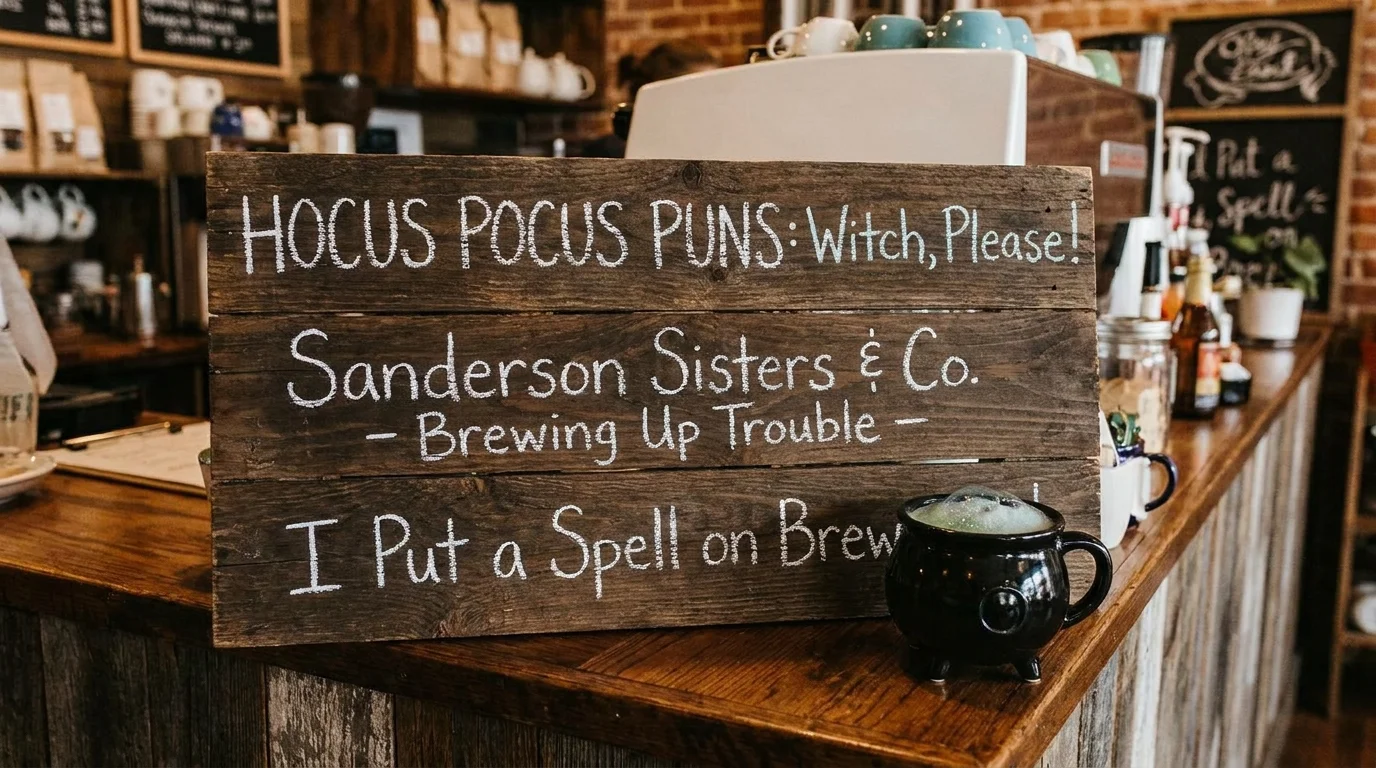 HOCUS POCUS PUNS: Witch, Please!
Sanderson Sisters & Co.
- Brewing Up Trouble -
I Put a Spell on Brew
I Put a
Spell
on